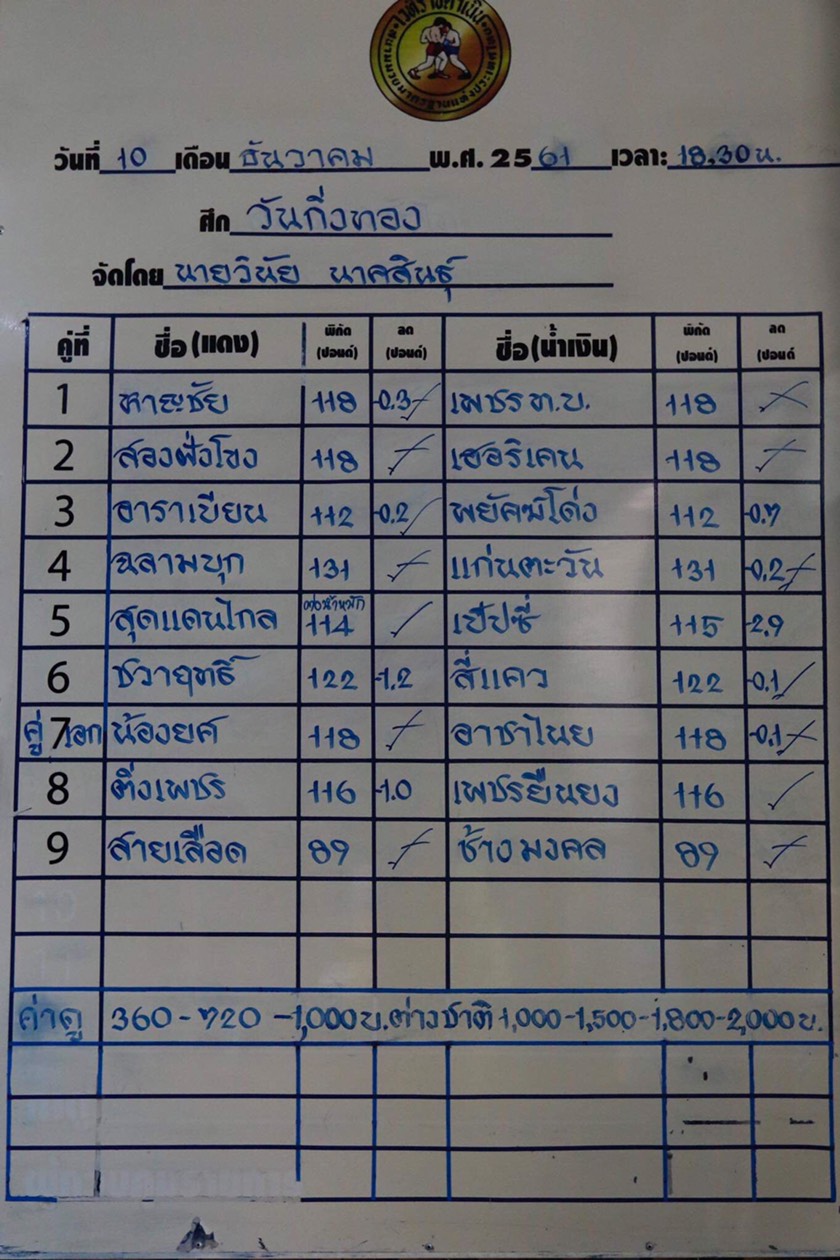 วันที่ 10 เดือน ธันวาคม พ.ศ. 2561 เวลา: 18.30 น.
ศึก วันกิ่งทอง
จัดโดย นายวินัย นาคสินธุ์
คู่ที่ ชื่อ (แดง) พิกัด (ปอนด์) ลด (ปอนด์) ชื่อ (น้ำเงิน) พิกัด (ปอนด์) ลด (ปอนด์
1 หาญชัย 118 -0.3 เพชร ท.บ. 118
2 สองฝั่งโขง 118 เฮอริเคน 118
3 อาราเบียน 112 -0.2 พยัคฆ์โด่ง 112 -0.7
4 ฉลามบุก 131 แก่นตะวัน 131 -0.2
5 สุดแดนไกล ต่อน้ำหนัก 114 เป๊ปซี่ 115 -2.9
6 ชวาฤทธิ์ 122 -1.2 สี่แคว 122 -0.1
คู่ 7 เอก น้องยศ 118 อาชาไนย 118 -0.1
8 ติ่งเพชร 116 -1.0 เพชรยืนยง 116
9 สายเลือด 89 ช้างมงคล 89
ค่าดู 360 - 720 - 1,000 บ. ต่างชาติ 1,000 - 1,500 - 1,800 - 2,000 บ.